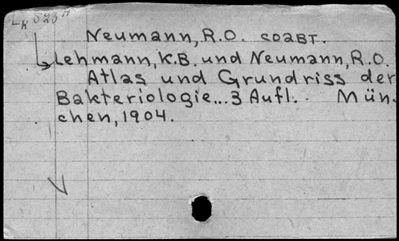 Neumann, R.O. соавт.
Lehmann, K.B. und Neumann, R.O.
Atlas und Grundriss der
Bakteriologie... 3 Aufl. Mün-
chen, 1904.